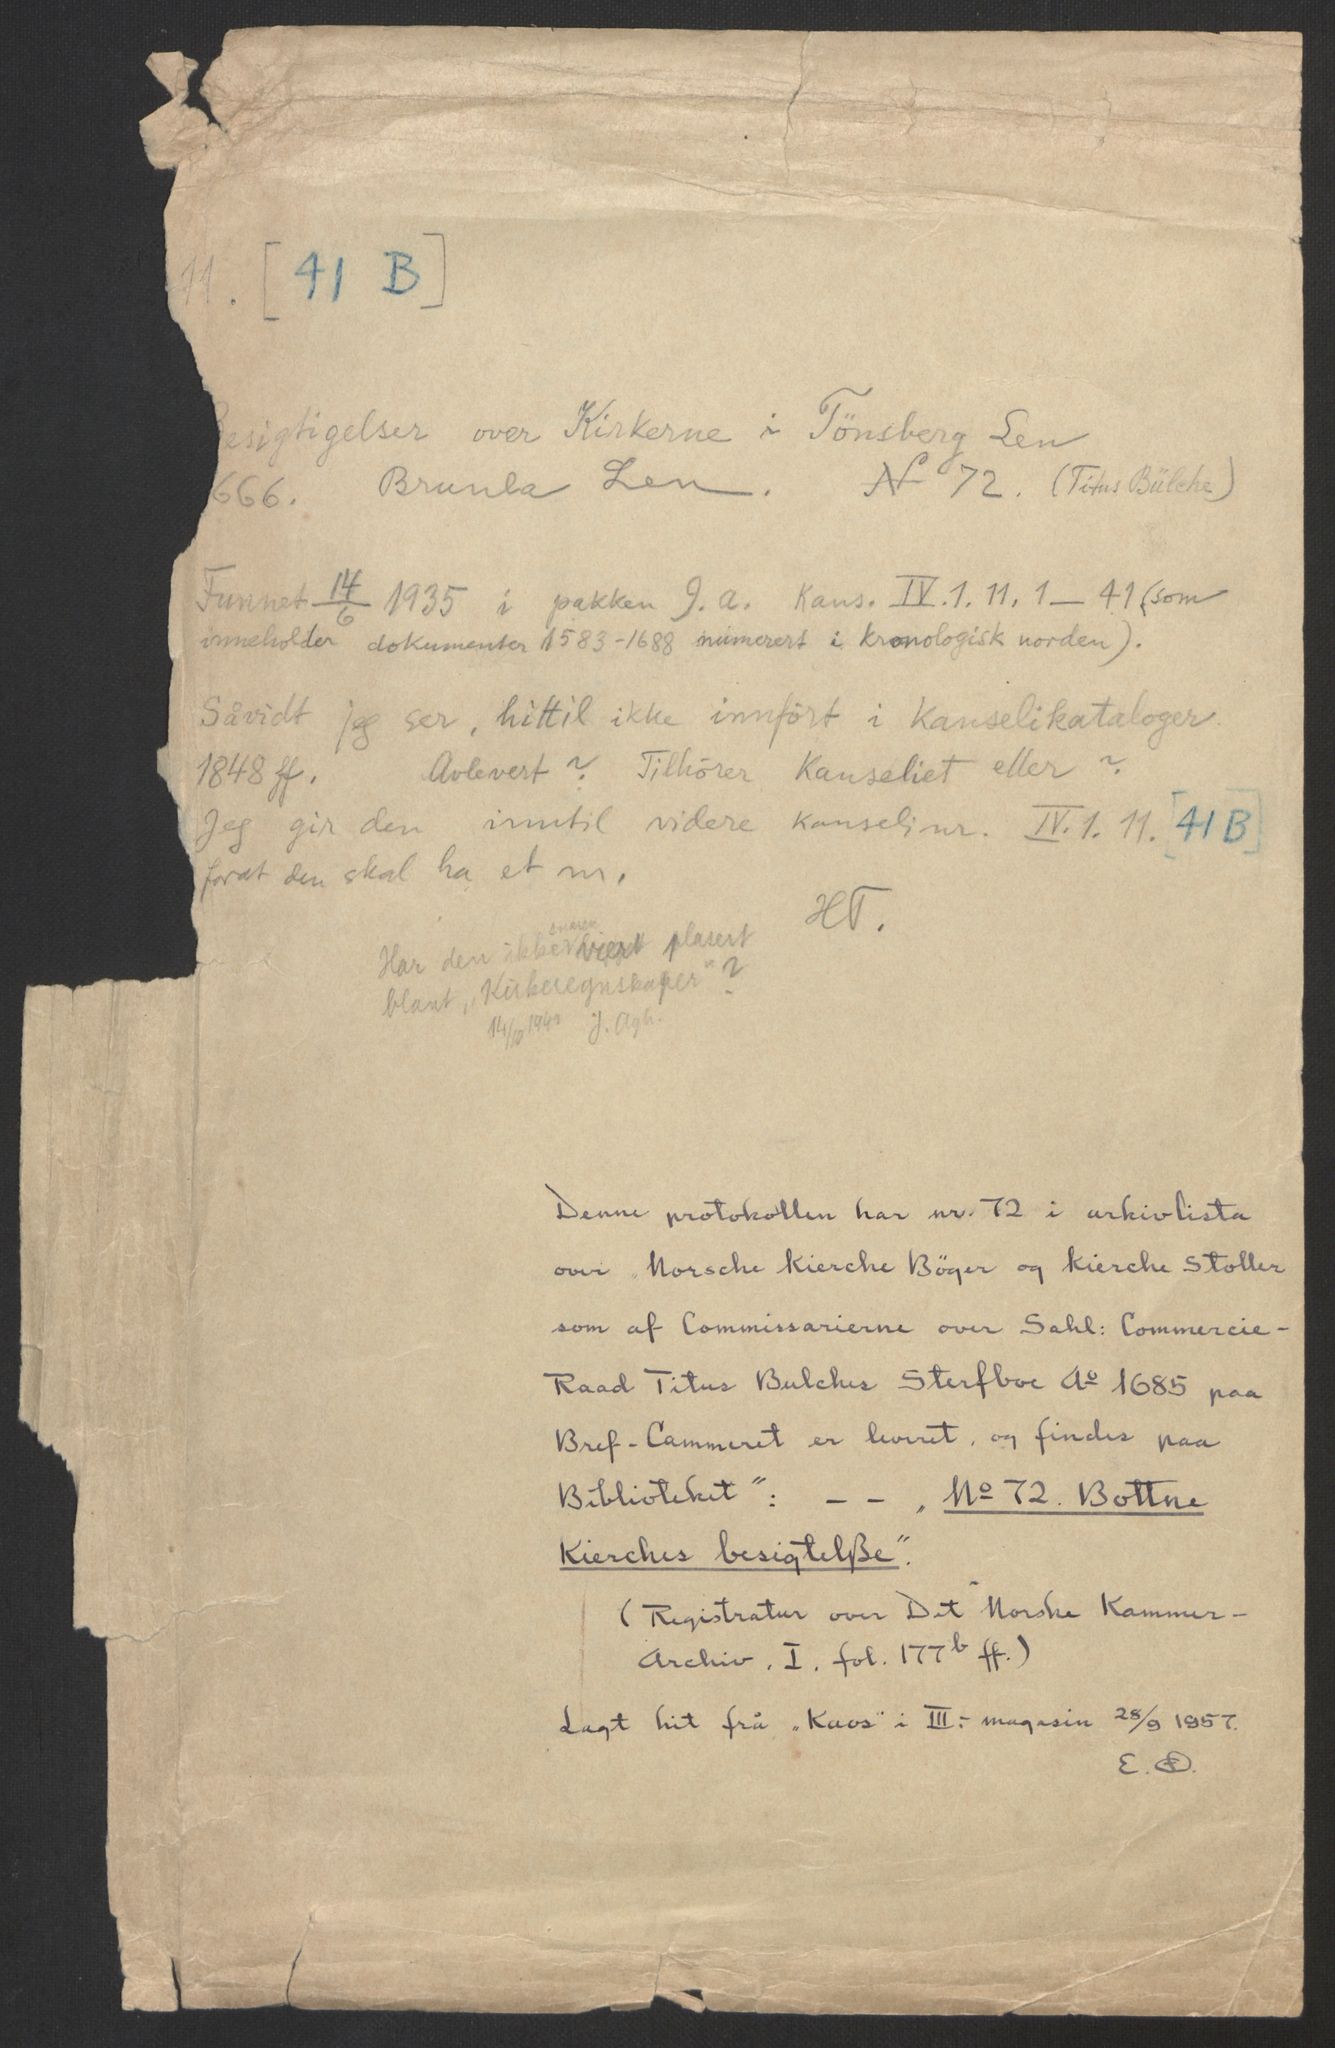 11. [41 B]
esigtigelser over Kirkerne i Tönsberg Len
666. Brunla Len. No 72. (Titus Bülche)
Funnet 14/6 1935 i pakken J. a. Kans. IV. 1. 11. 1 — 41 (som
inneholder dokumenter 1583-1688 numerert i kronologisk norden).
Såvidt jeg ser, hittil ikke innført i Kanselikataloger
1848 ff. Avlevert? Tilhörer Kanseliet eller?
Jeg gir den inntil videre kanselinr. IV. 1. 11. [41 B]
forat den skal ha et nr.
HT.
Har den ikke snarere vært plasert
blant „Kirkeregnskaper"?
J. Agh.
Denne protokollen har nr. 72 i arkivlista
over „Norsche Kierche Bøger og Kierche Stoller
som af Commissarierne over Sahl: Commercie-
Raad Titus Bulches Sterfboe Aº 1685 paa
Bref-Cammeret er leveret, og findes paa
Biblioteket": – – „Nº 72. Bottne
Kierches besigtelße".
(Registratur over Det Norske Kammer-
Archiv. I. fol. 177b ff.)
Lagt hit frå „Kaos" i III:- magasin 28/9 1957.